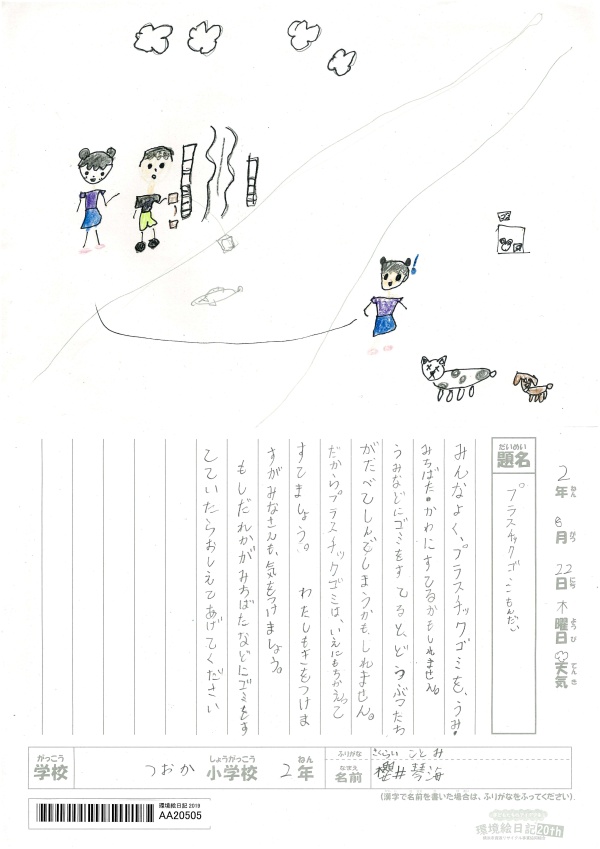 2年 8月 22日 木曜日 天気
ねん がつ にち ようび てんき
だいめい
題名
プラスチックゴミもんだい
みんなよく、プラスチックゴミを、うみ・
みちばた・かわにすてるかもしれません。
うみなどにゴミをすてると、どうぶつたち
がたべてしんでしまうかも、しれません。
だからプラスチックゴミは、いえにもちかえって
すてましょう。 わたしもきをつけま
すがみなさんも、気をつけましょう。
もしだれかがみちばたなどにゴミをす
てていたらおしえてあげてください
がっこう しょうがっこう ねん
学校 つおか 小学校 2年
ふりがな さくらい ことみ
なまえ
名前 櫻井 琴海
(漢字で名前を書いた場合は、ふりがなをふってください)
環境絵日記 2019
AA20505
環境絵日記20th